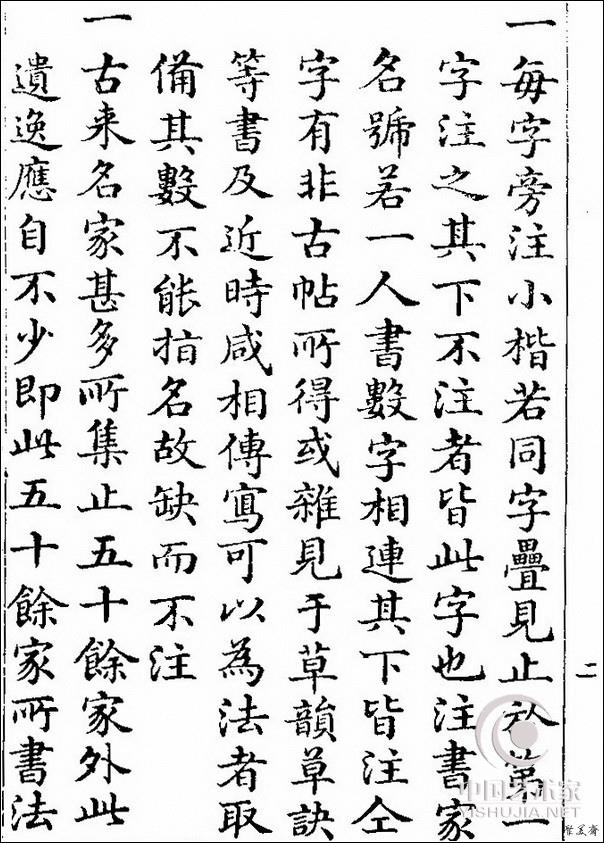 一每字旁注小楷若同字疊見止於第一
字注之其下不注者皆此字也注書家
名號若一人書數字相連其下皆注仝
字有非古帖所得或雜見于草韻草訣
等書及近時咸相傳寫可以為法者取
備其數不能指名故缺而不注
一古来名家甚多所集止五十餘家外此
遺逸應自不少即此五十餘家所書法
二
中国艺术家
YISHUJIA.NET